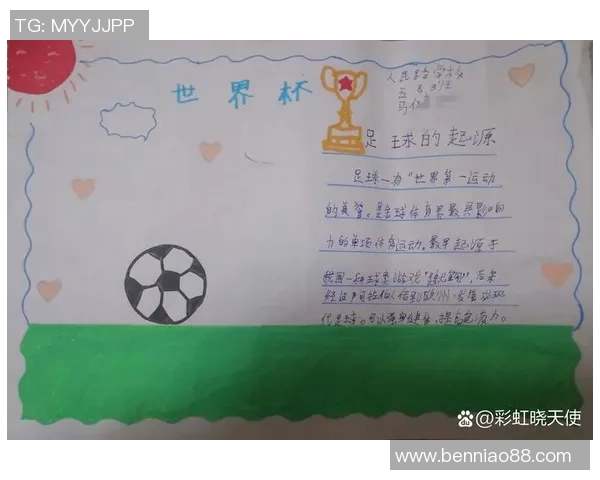 TG: MYYJJPP
世界杯
人民路学校
五
马
足球的起源
足球一有“世界第一运动
的美誉。是全球体育界最具影响
力的单项体育运动。最早起源于
我国一种球类游戏“蹴鞠”,后来
经过阿拉伯人传到欧洲,发展成现
代足球。可以强身健体,提高免疫力。
@彩虹晓天使
www.benniao88.com